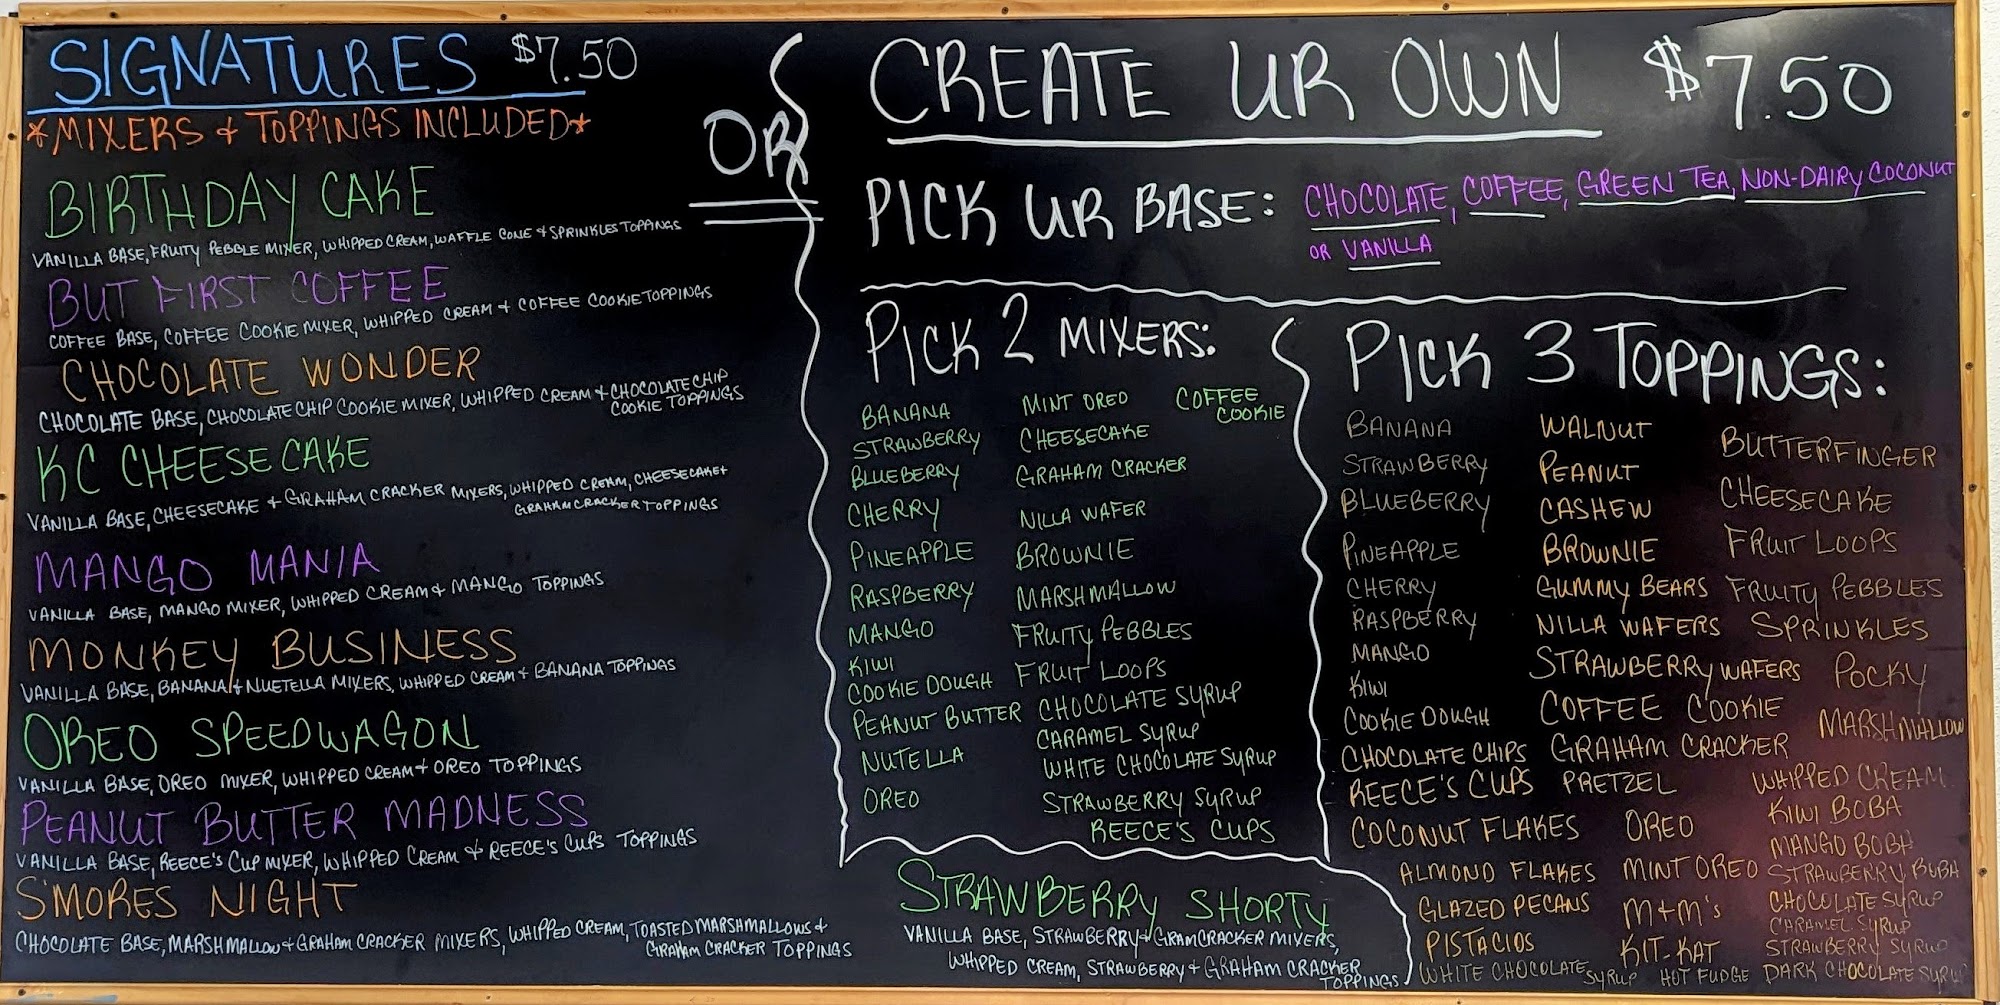 SIGNATURES $7.50
*MIXERS & TOPPINGS INCLUDED*
BIRTHDAY CAKE
VANILLA BASE, FRUITY PEBBLE MIXER, WHIPPED CREAM, WAFFLE CONE & SPRINKLES TOPPINGS
BUT FIRST COFFEE
COFFEE BASE, COFFEE COOKIE MIXER, WHIPPED CREAM & COFFEE COOKIE TOPPINGS
CHOCOLATE WONDER
CHOCOLATE BASE, CHOCOLATE CHIP COOKIE MIXER, WHIPPED CREAM & CHOCOLATE CHIP
COOKIE TOPPINGS
KC CHEESECAKE
VANILLA BASE, CHEESECAKE & GRAHAM CRACKER MIXERS, WHIPPED CREAM, CHEESECAKE &
GRAHAM CRACKER TOPPINGS
MANGO MANIA
VANILLA BASE, MANGO MIXER, WHIPPED CREAM & MANGO TOPPINGS
MONKEY BUSINESS
VANILLA BASE, BANANA & NUETELLA MIXERS, WHIPPED CREAM & BANANA TOPPINGS
OREO SPEEDWAGON
VANILLA BASE, OREO MIXER, WHIPPED CREAM & OREO TOPPINGS
PEANUT BUTTER MADNESS
VANILLA BASE, REECE'S CUP MIXER, WHIPPED CREAM & REECE'S CUPS TOPPINGS
S'MORES NIGHT
CHOCOLATE BASE, MARSHMALLOW & GRAHAM CRACKER MIXERS, WHIPPED CREAM, TOASTED MARSHMALLOWS &
GRAHAM CRACKER TOPPINGS
OR
CREATE UR OWN $7.50
PICK UR BASE: CHOCOLATE, COFFEE, GREEN TEA, NON-DAIRY COCONUT
OR VANILLA
PICK 2 MIXERS:
BANANA
STRAWBERRY
BLUEBERRY
CHERRY
PINEAPPLE
RASPBERRY
MANGO
KIWI
COOKIE DOUGH
PEANUT BUTTER
NUTELLA
OREO
MINT OREO
CHEESECAKE
GRAHAM CRACKER
NILLA WAFER
BROWNIE
MARSHMALLOW
FRUITY PEBBLES
FRUIT LOOPS
CHOCOLATE SYRUP
CARAMEL SYRUP
WHITE CHOCOLATE SYRUP
STRAWBERRY SYRUP
REECE'S CUPS
COFFEE
COOKIE
STRAWBERRY SHORTY
VANILLA BASE, STRAWBERRY & GRAMCRACKER MIXERS,
WHIPPED CREAM, STRAWBERRY & GRAHAM CRACKER
TOPPINGS
PICK 3 TOPPINGS:
BANANA
STRAWBERRY
BLUEBERRY
PINEAPPLE
CHERRY
RASPBERRY
MANGO
KIWI
COOKIE DOUGH
CHOCOLATE CHIPS
REECE'S CUPS
COCONUT FLAKES
ALMOND FLAKES
GLAZED PECANS
PISTACIOS
WHITE CHOCOLATE SYRUP
WALNUT
PEANUT
CASHEW
BROWNIE
GUMMY BEARS
NILLA WAFERS
STRAWBERRY WAFERS
COFFEE COOKIE
GRAHAM CRACKER
PRETZEL
OREO
MINT OREO
M+M'S
KIT-KAT
HOT FUDGE
BUTTERFINGER
CHEESECAKE
FRUIT LOOPS
FRUITY PEBBLES
SPRINKLES
POCKY
MARSHMALLOW
WHIPPED CREAM
KIWI BOBA
MANGO BOBA
STRAWBERRY BOBA
CHOCOLATE SYRUP
CARAMEL SYRUP
STRAWBERRY SYRUP
DARK CHOCOLATE SYRUP